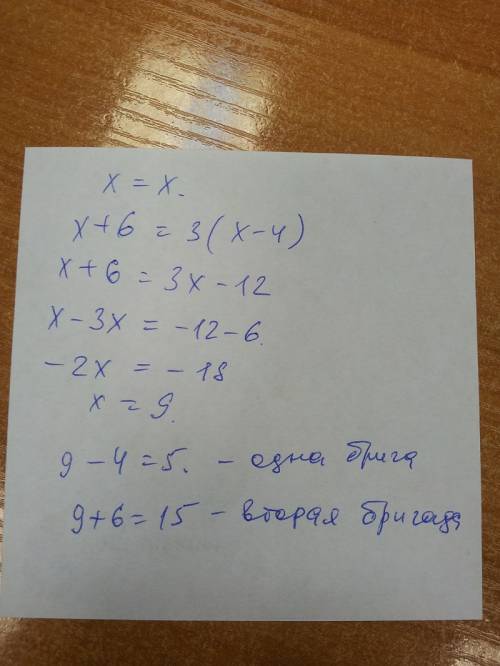 x = x.
x + 6 = 3(x - 4)
x + 6 = 3x - 12
x - 3x = -12 - 6.
-2x = -18
x = 9.
9 - 4 = 5. - одна брига
9 + 6 = 15 - вторая бригада